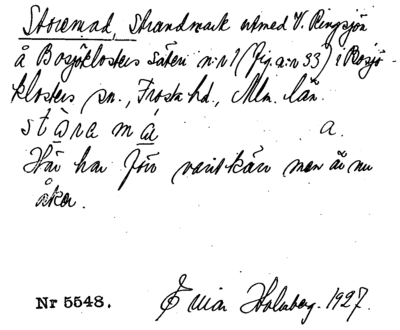 Storemad, strandmark utmed V. Ringsjön
å Bosjöklosters säteri n:r 1 (fig. a:n 33) i Bosjö-
klosters sn., Frosta hd., Mlm. län.
stàra má a.
Här har förr varit kärr men är nu
åker.
Nr 5548. Einar Holmberg. 1927.